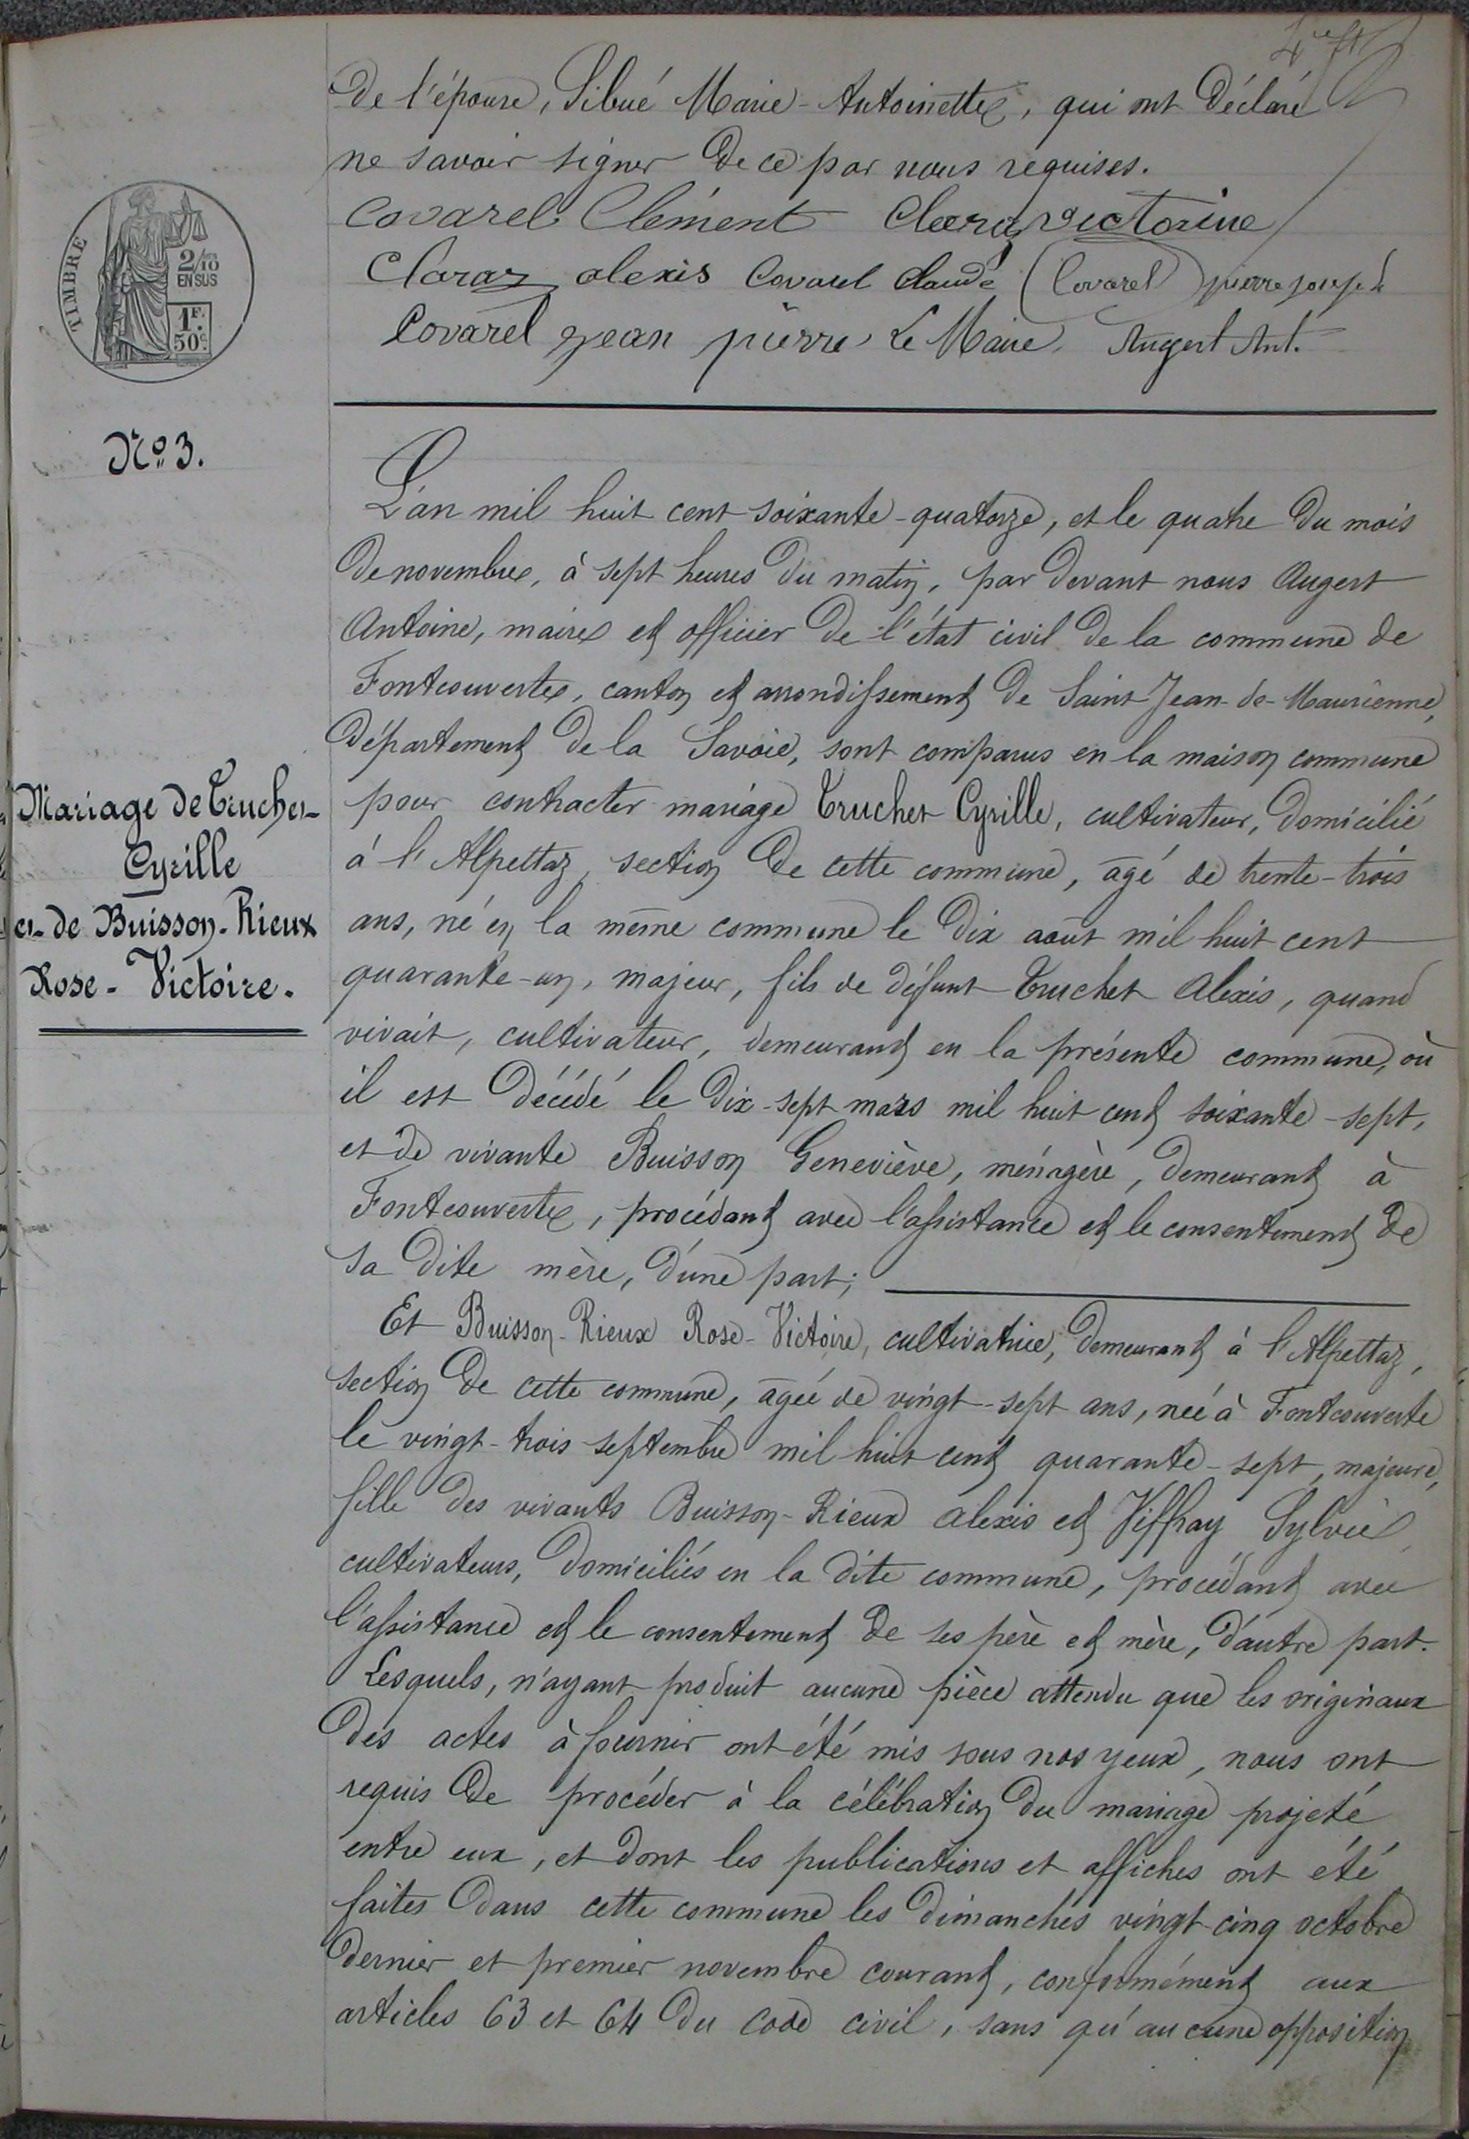 de l'épouse, Sibué Marie-Antoinette, qui ont déclaré
ne savoir signer de ce par nous requises.
Covarel Clément Claraz victorine
Claraz alexis Covarel Claude Covarel pierre joseph
Covarel jean pierre Le Maire, Augert Ant.
TIMBRE
2/10
EN SUS
1F.
50c.
No 3.
Mariage de Truchet
Cyrille
et de Buisson-Rieux
Rose-Victoire.
L'an mil huit cent soixante-quatorze, et le quatre du mois
de novembre, à sept heures du matin, par devant nous Augert
Antoine, maire et officier de l'état civil de la commune de
Fontcouverte, canton et arrondissement de Saint Jean-de-Maurienne,
département de la Savoie, sont comparus en la maison commune
pour contracter mariage Truchet Cyrille, cultivateur, domicilié
à l'Alpettaz, section de cette commune, âgé de trente-trois
ans, né en la même commune le dix août mil huit cent
quarante-un, majeur, fils de défunt Truchet Alexis, quand
vivait, cultivateur, demeurant en la présente commune, où
il est décédé le dix-sept mars mil huit cent soixante-sept,
et de vivante Buisson Geneviève, ménagère, demeurant à
Fontcouverte, procédant avec l'assistance et le consentement de
sa dite mère, d'une part;
Et Buisson-Rieux Rose-Victoire, cultivatrice, demeurant à l'Alpettaz,
section de cette commune, âgée de vingt-sept ans, née à Fontcouverte
le vingt-trois septembre mil huit cent quarante-sept, majeure,
fille des vivants Buisson-Rieux Alexis et Viffray Sylvie
cultivateurs, domiciliés en la dite commune, procédant avec
l'assistance et le consentement de ses père et mère, d'autre part.
Lesquels, n'ayant produit aucune pièce attendu que les originaux
des actes à fournir ont été mis sous nos yeux, nous ont
requis de procéder à la célébration du mariage projeté
entre eux, et dont les publications et affiches ont été
faites dans cette commune les dimanches vingt cinq octobre
dernier et premier novembre courant, conformément aux
articles 63 et 64 du code civil, sans qu'aucune opposition